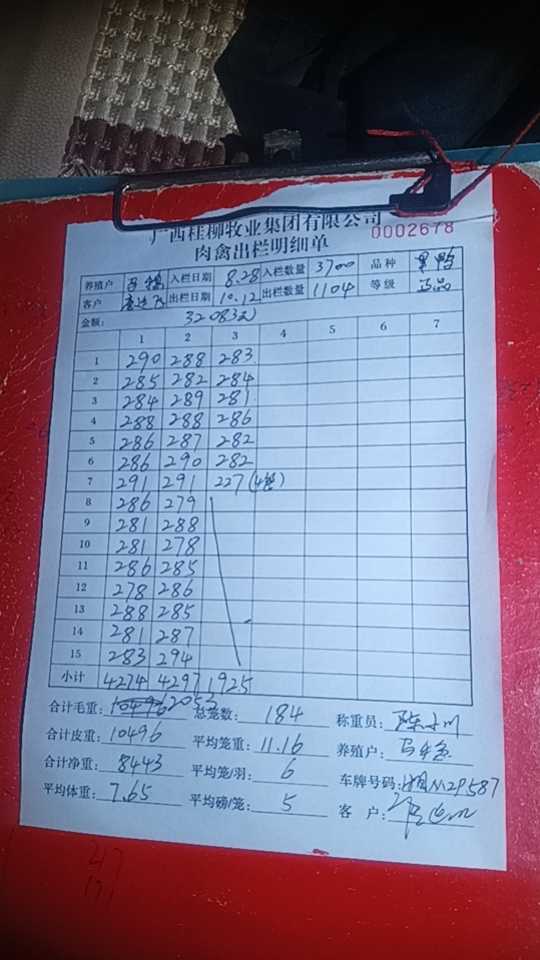 广西桂柳牧业集团有限公司
肉禽出栏明细单 0002678
养殖户 入栏日期 8.28 入栏数量 3700 品种 黑鸭
客户 出栏日期 10.12 出栏数量 1104 等级 正品
金额: 32083元
1 2 3 4 5 6 7
1 290 288 283
2 285 282 284
3 284 289 281
4 288 288 286
5 286 287 282
6 286 290 282
7 291 291 227 (4笼)
8 286 279
9 281 288
10 281 278
11 286 285
12 278 286
13 288 285
14 281 287
15 283 294
小计 4274 4297 1925
合计毛重: 10496 2053 总笼数: 184 称重员:
合计皮重: 10496 平均笼重: 11.16 养殖户:
合计净重: 8443 平均笼/羽: 6 车牌号码: 湘M29587
平均体重: 7.65 平均磅/笼: 5 客 户:
47
171